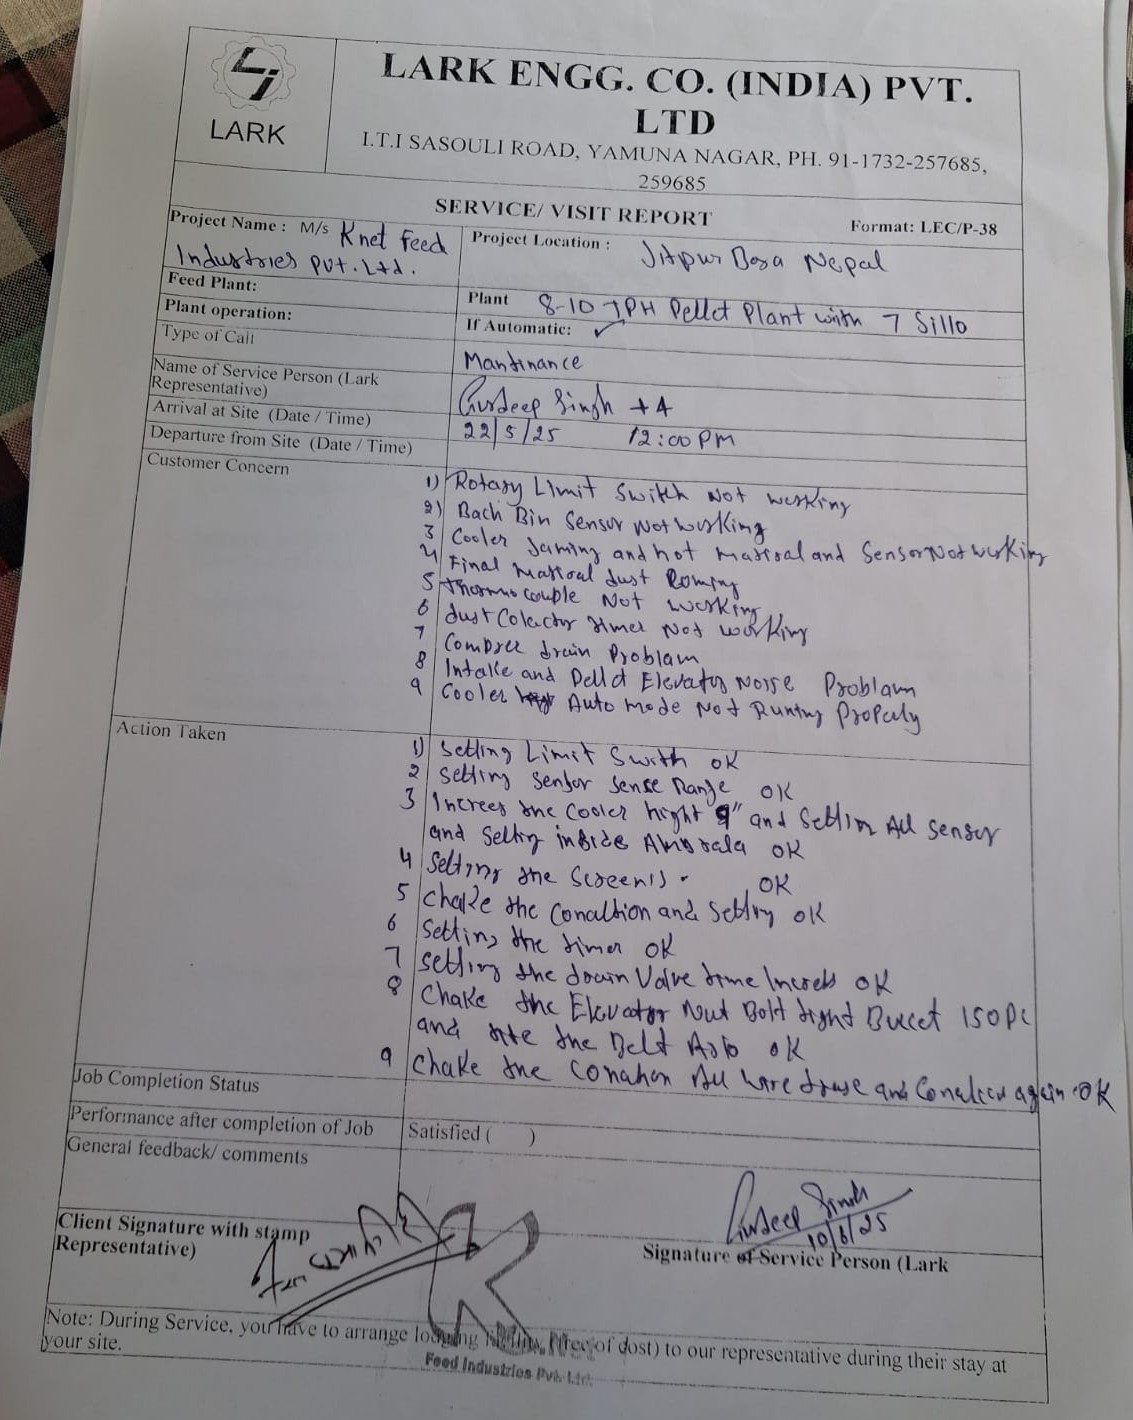 LARK
LARK ENGG. CO. (INDIA) PVT.
LTD
I.T.I SASOULI ROAD, YAMUNA NAGAR, PH. 91-1732-257685,
259685
SERVICE/ VISIT REPORT
Format: LEC/P-38
Project Name : M/s Knet Feed
Industries Pvt. Ltd.
Project Location : Jitpur Bara Nepal
Feed Plant:
Plant 8-10 TPH Pellet Plant with 7 Sillo
Plant operation:
If Automatic: ✓
Type of Call
Mantinance
Name of Service Person (Lark
Representative)
Gurdeep Singh +4
Arrival at Site (Date / Time)
22/5/25 12:00 PM
Departure from Site (Date / Time)
Customer Concern
1) Rotary Limit Switch Not working
2) Bach Bin Sensor Not working
3 Cooler Jaming and hot and Sensor Not working
4 Final dust
5 Thermocouple Not working
6 dust timer Not working
7 drain Problam
8 Intake and Pellet Elevator Noise Problam
9 Cooler Auto mode Not Runing
Action Taken
1) Setting Limit OK
2 Setting Sensor Sense Range OK
3 the Cooler 9" and Setting All Sensor
and Setting inside OK
4 Setting the OK
5 Chake the and Setting OK
6 Setting the timer OK
7 Setting the drain Valve time OK
8 Chake the Elevator Nut Bolt tight 150 Pc
and the Belt OK
9 Chake the All and again OK
Job Completion Status
Performance after completion of Job
Satisfied ( )
General feedback/ comments
Gurdeep Singh
10/6/25
Client Signature with stamp
Representative)
Signature of Service Person (Lark
Note: During Service, you have to arrange lodging (free of cost) to our representative during their stay at
your site.
Feed Industries Pvt. Ltd.